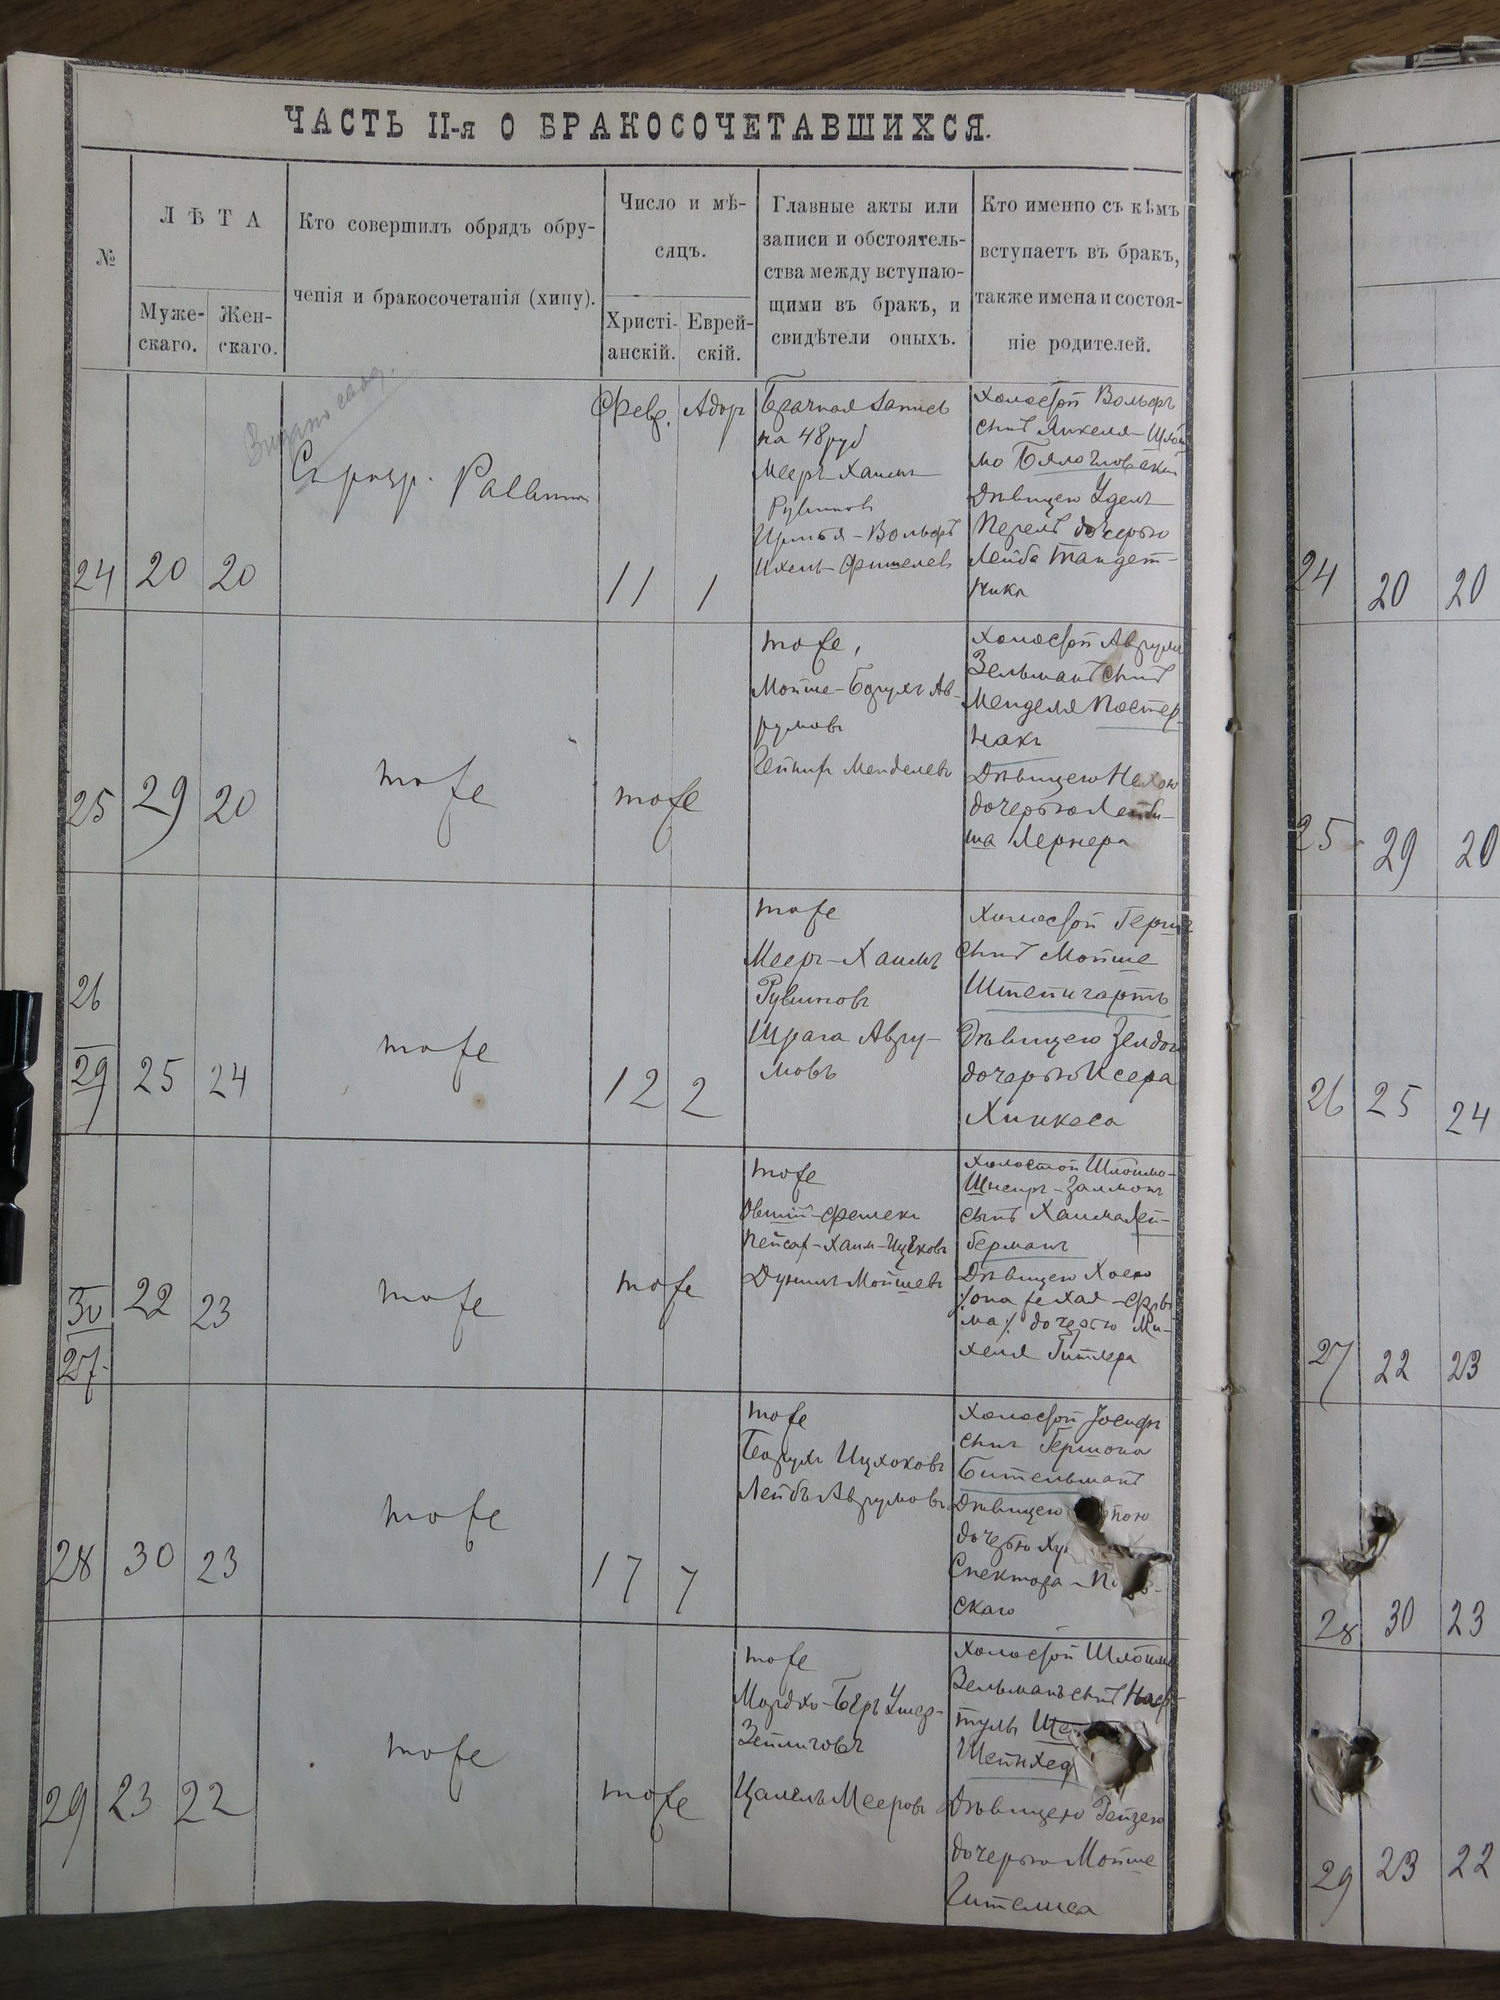 ЧАСТЬ II-я О БРАКОСОЧЕТАВШИХСЯ.
№
ЛѢТА
Муже-
скаго.
Жен-
скаго.
Кто совершилъ обрядъ обру-
ченія и бракосочетанія (хипу).
Число и мѣ-
сяцъ.
Христі-
анскій.
Еврей-
скій.
Главные акты или
записи и обстоятель-
ства между вступаю-
щими въ бракъ, и
свидѣтели оныхъ.
Кто именно съ кѣмъ
вступаетъ въ бракъ,
также имена и состоя-
ніе родителей.
24
20
20
Февр.
11
Адор
1
Брачная запись
на 48 руб
Мееръ-Хаимъ
Рувиновъ
Вольфъ
Холостой Вольфъ
сынъ
Дѣвицею Удель
Перель дочерью
Лейба Тандет-
ника
25
29
20
тоже
тоже
тоже,
Мойше-Борухъ Ав-
румовъ
Менделевъ
Холостой Аврумъ
Зельманъ сынъ
Менделя Пастер-
накъ
Дѣвицею Нехою
дочерью Лейби-
ша Лернера
26
29
25
24
тоже
12
2
тоже
Мееръ-Хаимъ
Рувиновъ
Шрага Авру-
мовъ
Холостой Гершъ
сынъ Мойше
Штейнгартъ
Дѣвицею Зелдою
дочерью Исера
Хинкеса
30
27
22
23
тоже
тоже
тоже
Пейсах-Хаим-Ицковъ
Мойшевъ
холостой Шлойма-
сынъ Хаима Лей-
берманъ
Дѣвицею Хаею
дочерью Ми-
хеля Гитлера
28
30
23
тоже
17
7
тоже
Борухъ Ицхоковъ
Лейбъ Аврумовъ
Холостой Іосифъ
сынъ Гершона
Бительманъ
Дѣвицею
дочерью
Спектора
скаго
29
23
22
тоже
тоже
тоже
Мордхо-Беръ Ушер-
Зейлиговъ
Мееровъ
Холостой Шлойма
Зельманъ сынъ Наф-
тулы
Дѣвицею Рейзею
дочерью Мойше
Гителиса
24
20
20
25
29
20
26
25
24
27
22
23
28
30
23
29
23
22